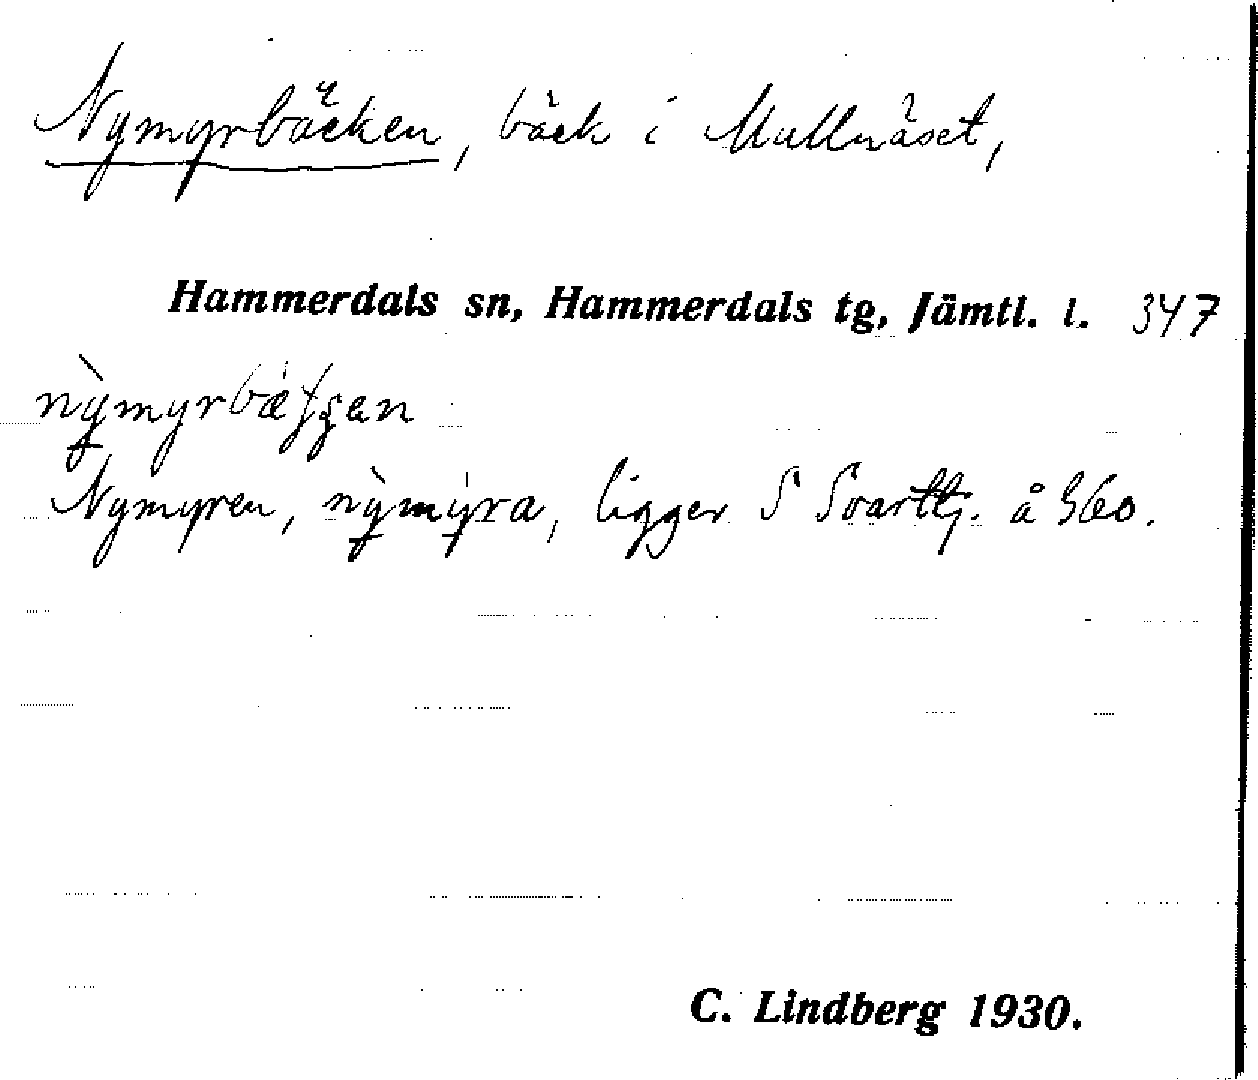 Nymyrbäcken, bäck i Mullnäset,
Hammerdals sn, Hammerdals tg, Jämtl. l. 347
Nymyren, nỳmýra, ligger S Svarttj. å 360.
C. Lindberg 1930.